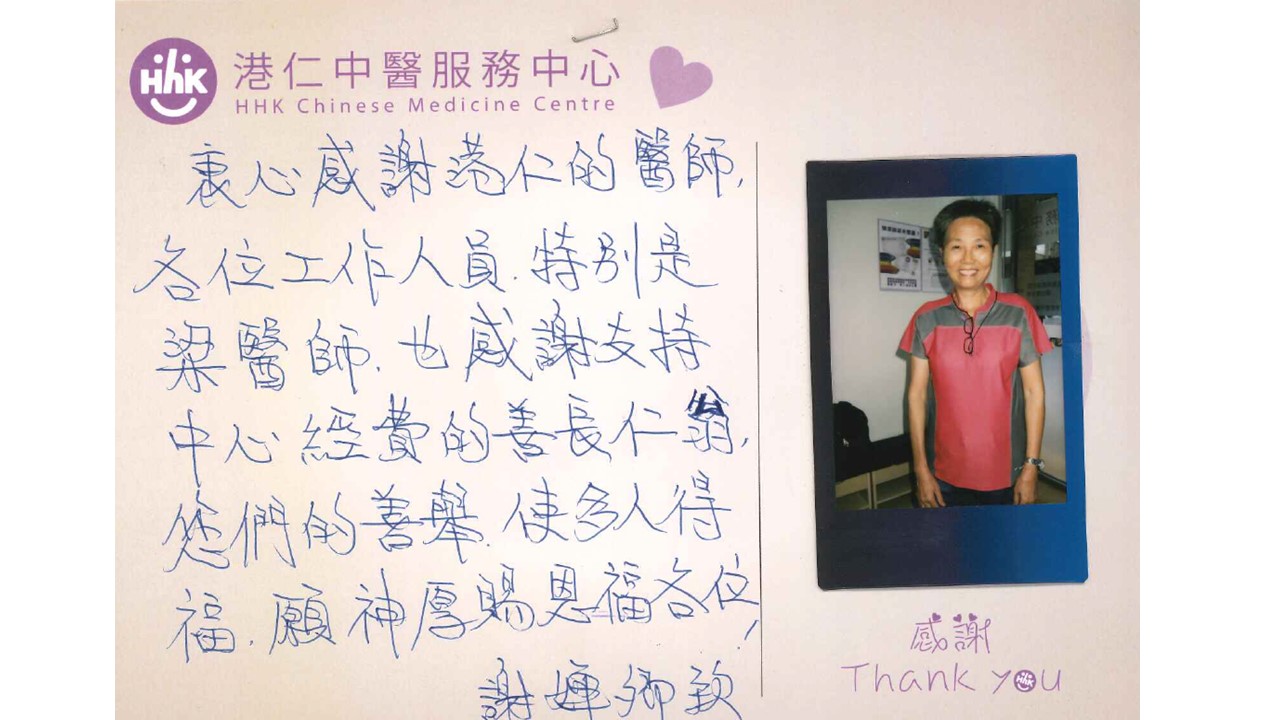 HHK
港仁中醫服務中心
HHK Chinese Medicine Centre
衷心感謝港仁的醫師,
各位工作人員.特別是
梁醫師.也感謝支持
中心經費的善長仁翁,
您們的善舉.使多人得
福.願神厚賜恩福各位!
謝嬋卿致
感謝
Thank you